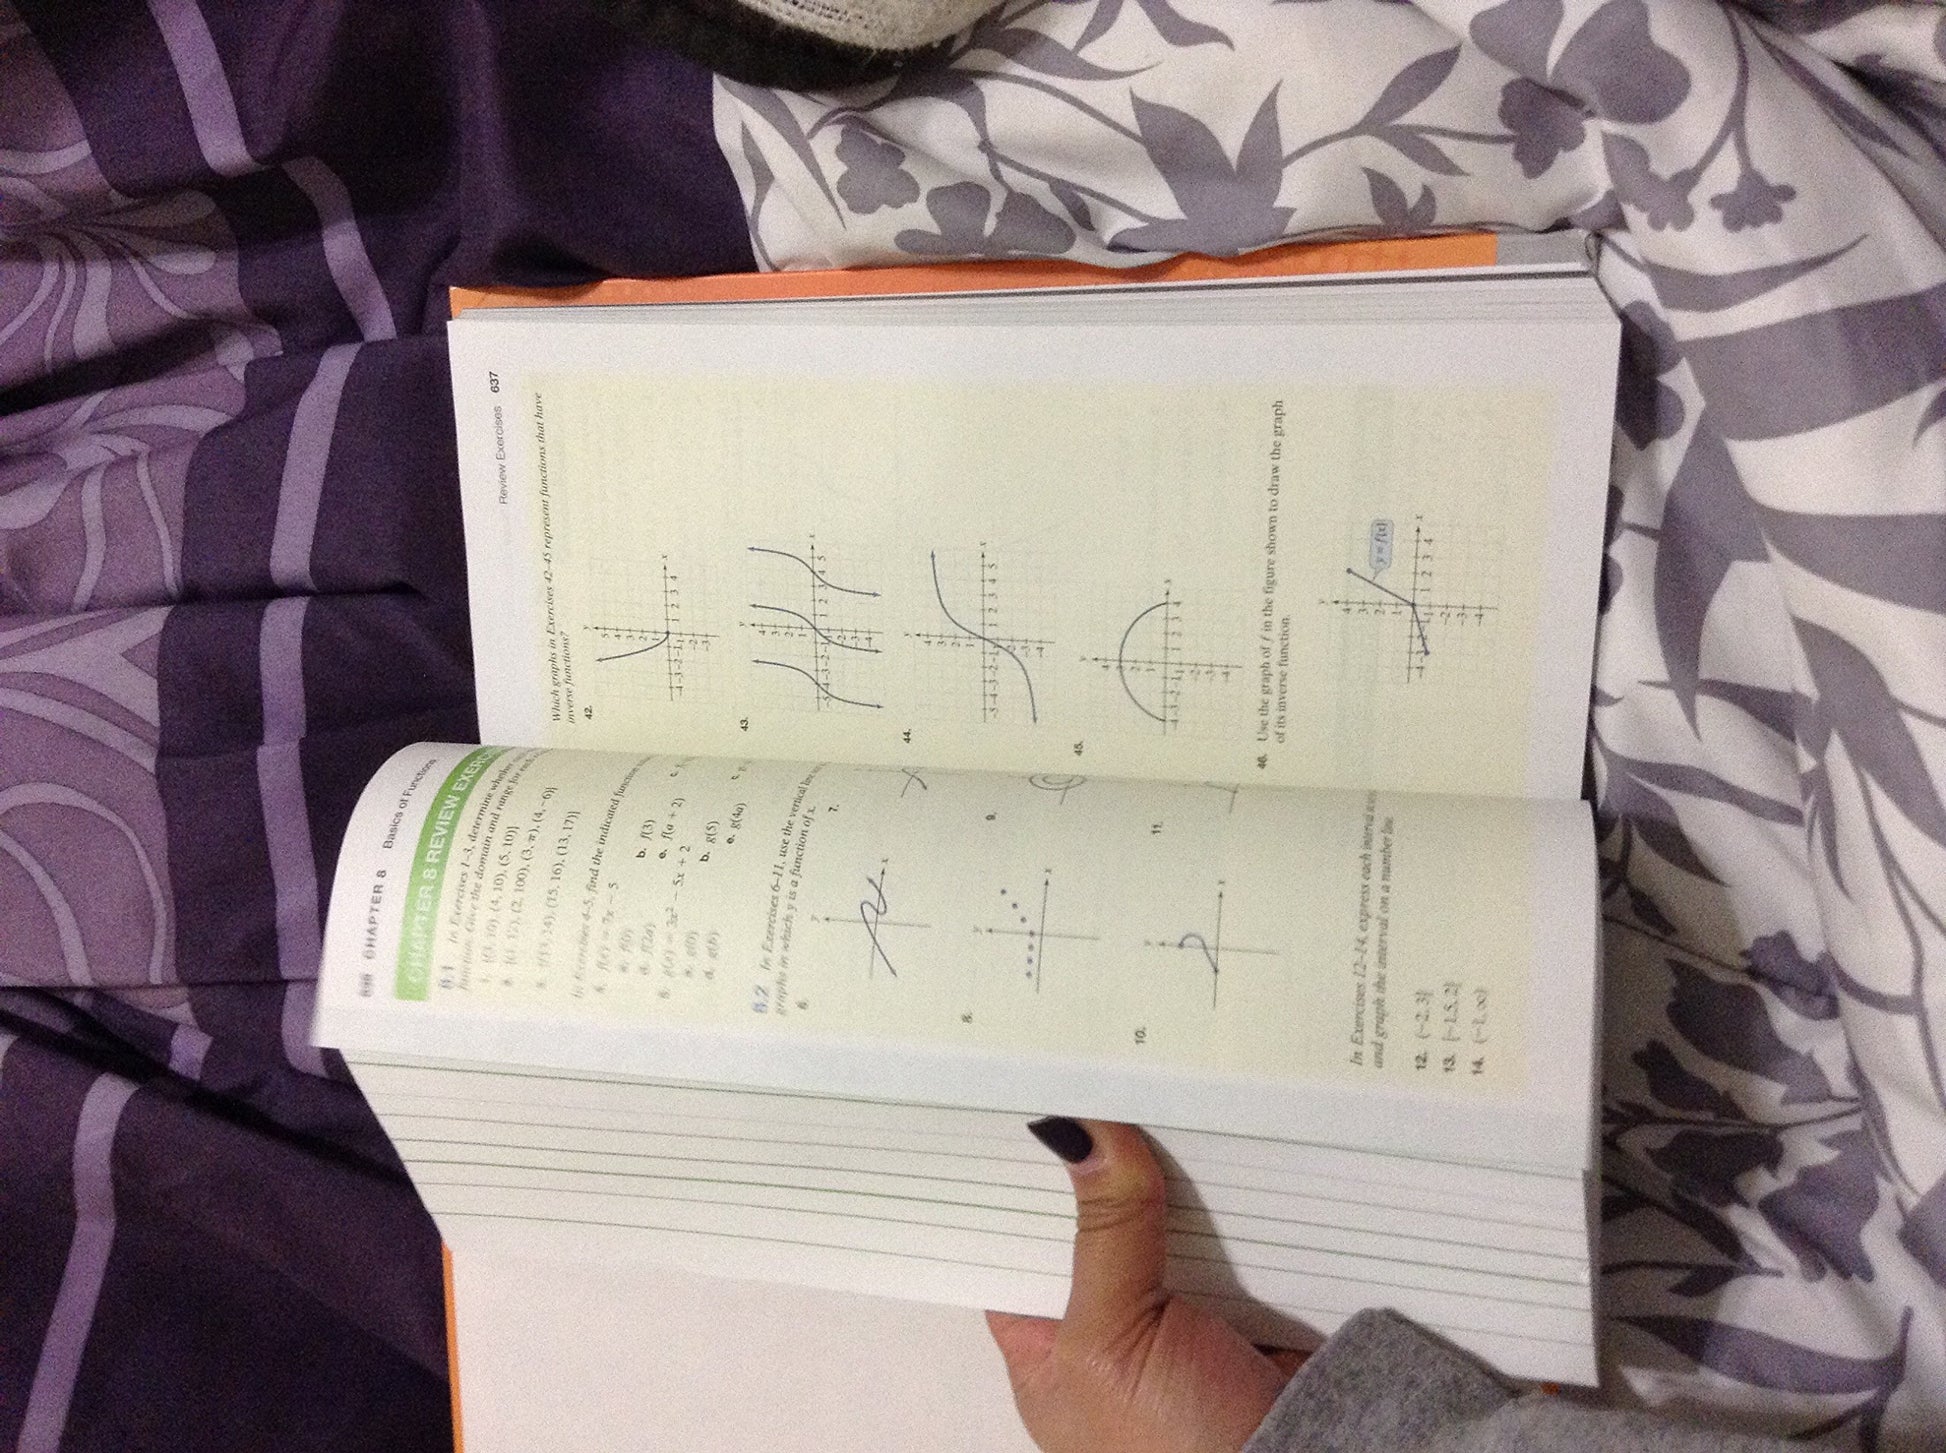 CHAPTER 8 Basics of Functions
CHAPTER 8 REVIEW EXERC
8.1 In Exercises 1–3, determine whether
function. Give the domain and range for each
1. {(3, 10), (4, 10), (5, 10)}
2. {(1, 12), (2, 100), (3, π), (4, −6)}
3. {(13, 14), (15, 16), (13, 17)}
In Exercises 4–5, find the indicated function
4. f(x) = 7x − 5
a. f(0) b. f(3) c.
d. f(2a) e. f(a + 2)
5. g(x) = 3x² − 5x + 2
a. g(0) b. g(5) c.
d. g(b) e. g(4a)
8.2 In Exercises 6–11, use the vertical line
graphs in which y is a function of x.
6. 7.
y
x
8. 9.
y
x
10. 11.
y
x
In Exercises 12–14, express each interval
and graph the interval on a number line.
12. (−2, 3]
13. [−1.5, 2]
14. (−1, ∞)
Review Exercises 637
Which graphs in Exercises 42–45 represent functions that have
inverse functions?
42.
y
5
4
3
2
1
−4 −3 −2 −1 1 2 3 4 x
−2
−3
43.
y
4
3
2
1
−5 −4 −3 −2 −1 1 2 3 4 5 x
−2
−3
−4
44.
y
4
3
2
1
−5 −4 −3 −2 −1 1 2 3 4 5 x
−3
−4
45.
y
4
2
1
−4 −3 −2 −1 1 2 3 4 x
−2
−3
−4
46. Use the graph of f in the figure shown to draw the graph
of its inverse function.
y
4
3
2
1
y = f(x)
−4 −3 −2 −1 1 2 3 4 x
−2
−3
−4